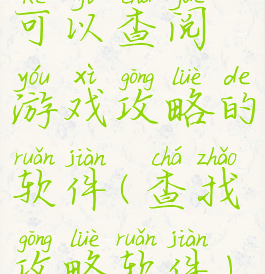 kě yǐ chá yuè
可以查阅
yóu xì gōng lüè de
游戏攻略的
ruǎn jiàn chá zhǎo
软件(查找
gōng lüè ruǎn jiàn
攻略软件)